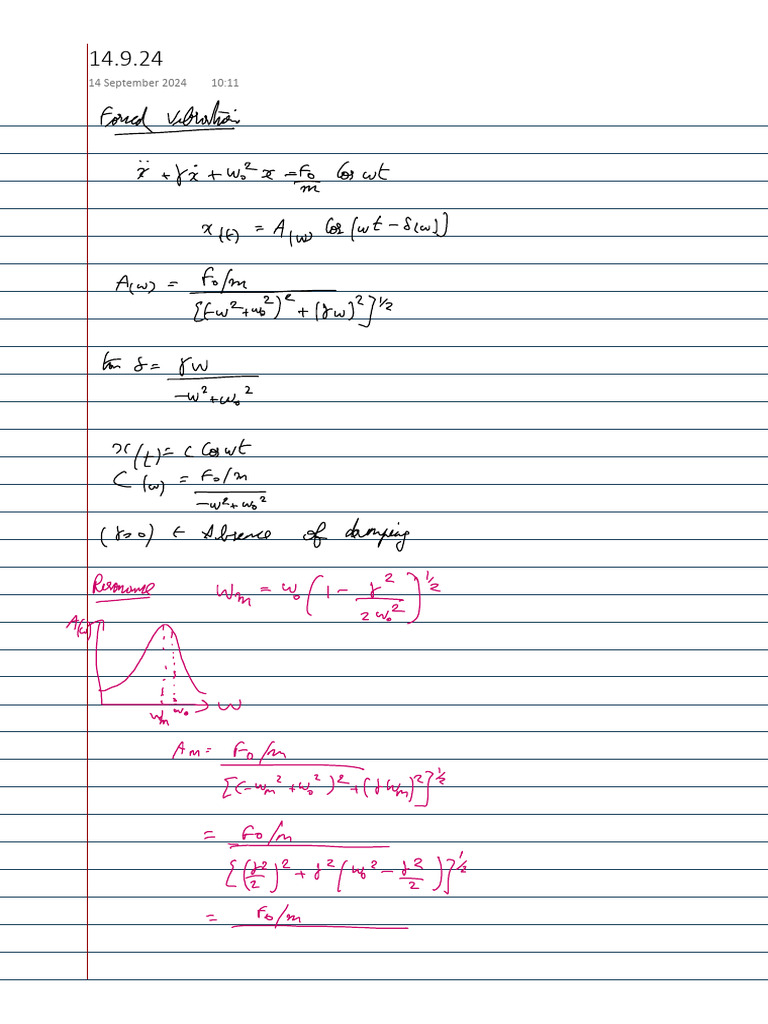 14.9.24
14 September 2024 10:11
Forced Vibration
ẍ + γẋ + ω₀² x = F₀/m Cos ωt
x(t) = A(ω) Cos(ωt - δ(ω))
A(ω) = F₀/m / [(-ω² + ω₀²)² + (γω)²]^1/2
tan δ = γω / -ω² + ω₀²
x(t) = C Cos ωt
C(ω) = F₀/m / -ω² + ω₀²
(γ=0) ← Absence of damping
Resonance ωₘ = ω₀ (1 - γ²/2ω₀²)^1/2
A(ω)
ωₘ ω₀ ω
Aₘ = F₀/m / [(-ωₘ² + ω₀²)² + (γωₘ)²]^1/2
= F₀/m / [(γ²/2)² + γ²(ω₀² - γ²/2)]^1/2
= F₀/m